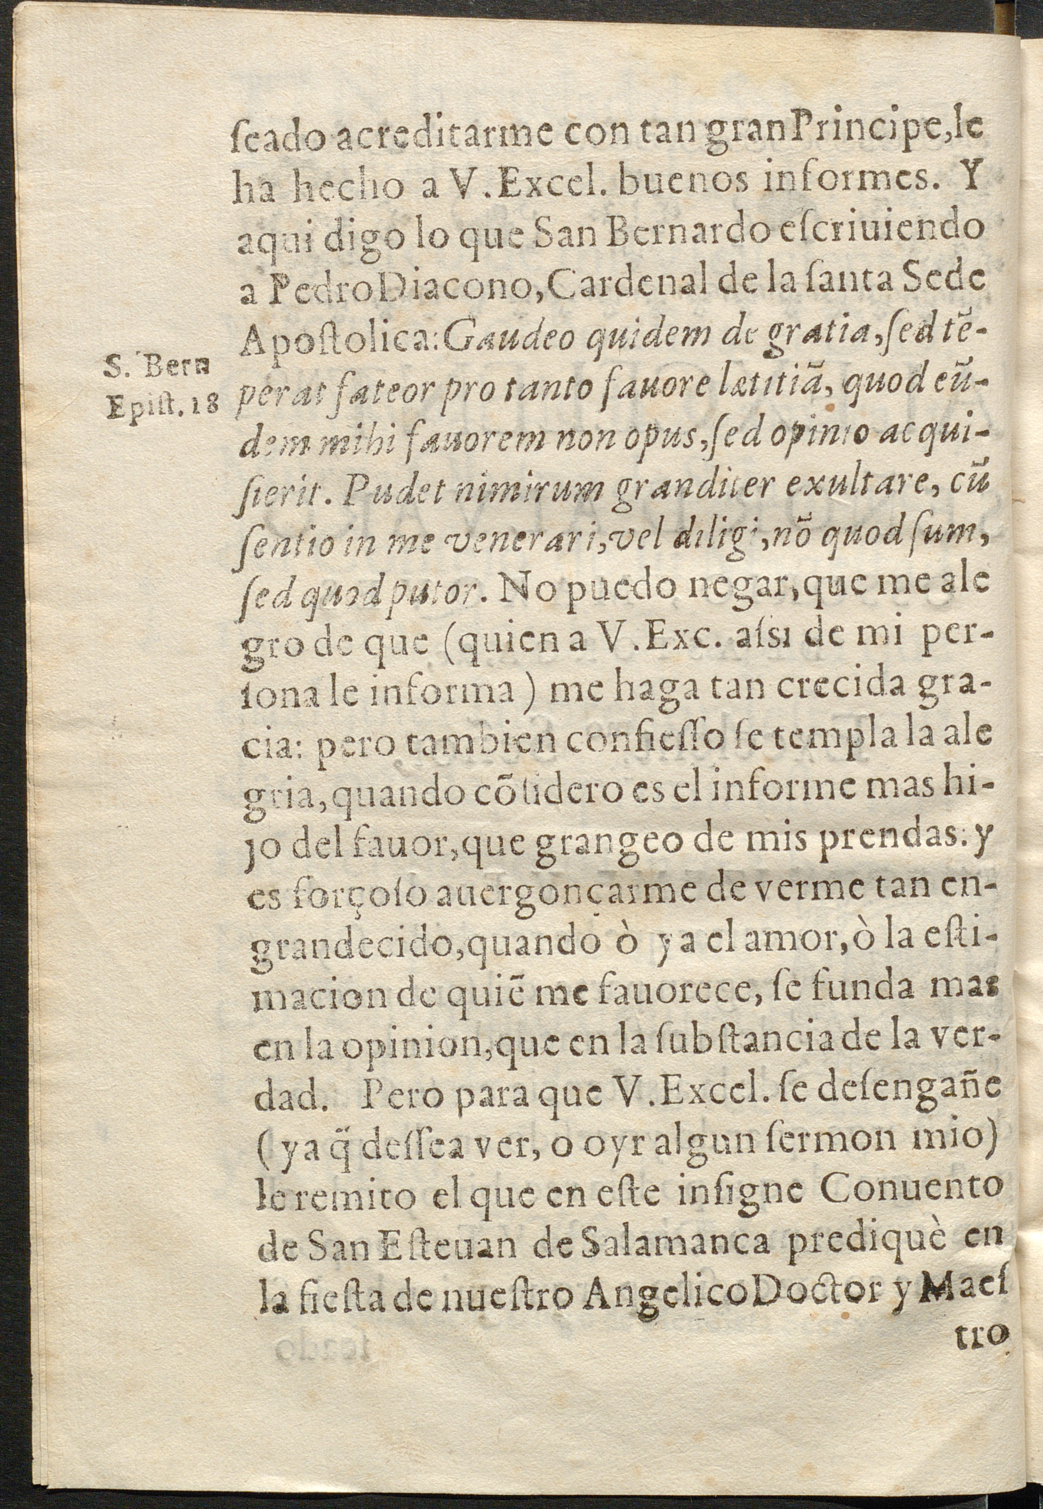 ſeado acreditarme con tan gran Principe, le
ha hecho a V. Excel. buenos informes. Y
aqui digo lo que San Bernardo eſcriuiendo
a Pedro Diacono, Cardenal de la ſanta Sede
Apoſtolica: Gaudeo quidem de gratia, ſed tẽ-
S. Bern
Epiſt. 18
perat fateor pro tanto fauore lætitiã, quod eũ-
dem mihi fauorem non opus, ſed opinio acqui-
ſierit. Pudet nimirum granditer exultare, cũ
ſentio in me venerari, vel diligi, nõ quod ſum,
ſed quod putor. No puedo negar, que me ale
gro de que (quien a V. Exc. aſsi de mi per-
ſona le informa) me haga tan crecida gra-
cia: pero tambien confieſſo ſe templa la ale
gria, quando cõſidero es el informe mas hi-
jo del fauor, que grangeo de mis prendas: y
es forçoſo auergonçarme de verme tan en-
grandecido, quando ò ya el amor, ò la eſti-
macion de quiẽ me fauorece, ſe funda mas
en la opinion, que en la ſubſtancia de la ver-
dad. Pero para que V. Excel. ſe deſengañe
(ya q̃ deſſea ver, o oyr algun ſermon mio)
le remito el que en eſte inſigne Conuento
de San Eſteuan de Salamanca prediquè en
la fieſta de nueſtro Angelico Doctor y Maeſ
tro